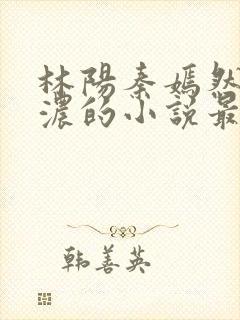 林陽秦嫣然
濃的小說最
韩善英